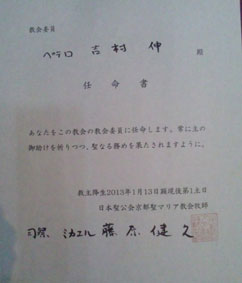 教会委員
ペテロ 吉村 伸 殿
任命書
あなたをこの教会の教会委員に任命します。常に主の
御助けを祈りつつ、聖なる務めを果たされますように。
救主降生2013年1月13日顕現後第1主日
日本聖公会京都聖マリア教会牧師
司祭 ミカエル 藤原健久